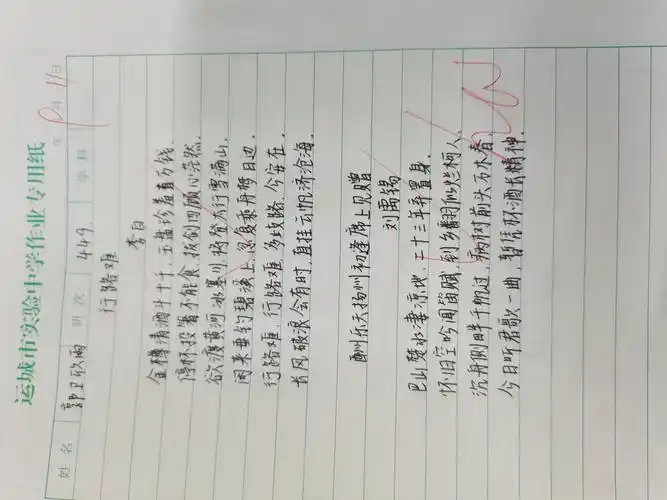 运城市实验中学作业专用纸
姓名 郭卫欣雨 班次 449 学科 年 9月11日
行路难
李白
金樽清酒斗十千,玉盘珍羞直万钱.
停杯投箸不能食,拔剑四顾心茫然.
欲渡黄河冰塞川,将登太行雪满山.
闲来垂钓碧溪上,忽复乘舟梦日边.
行路难,行路难,多歧路,今安在.
长风破浪会有时,直挂云帆济沧海.
酬乐天扬州初逢席上见赠
刘禹锡
巴山楚水凄凉地,二十三年弃置身.
怀旧空吟闻笛赋,到乡翻似烂柯人.
沉舟侧畔千帆过,病树前头万木春.
今日听君歌一曲,暂凭杯酒长精神.